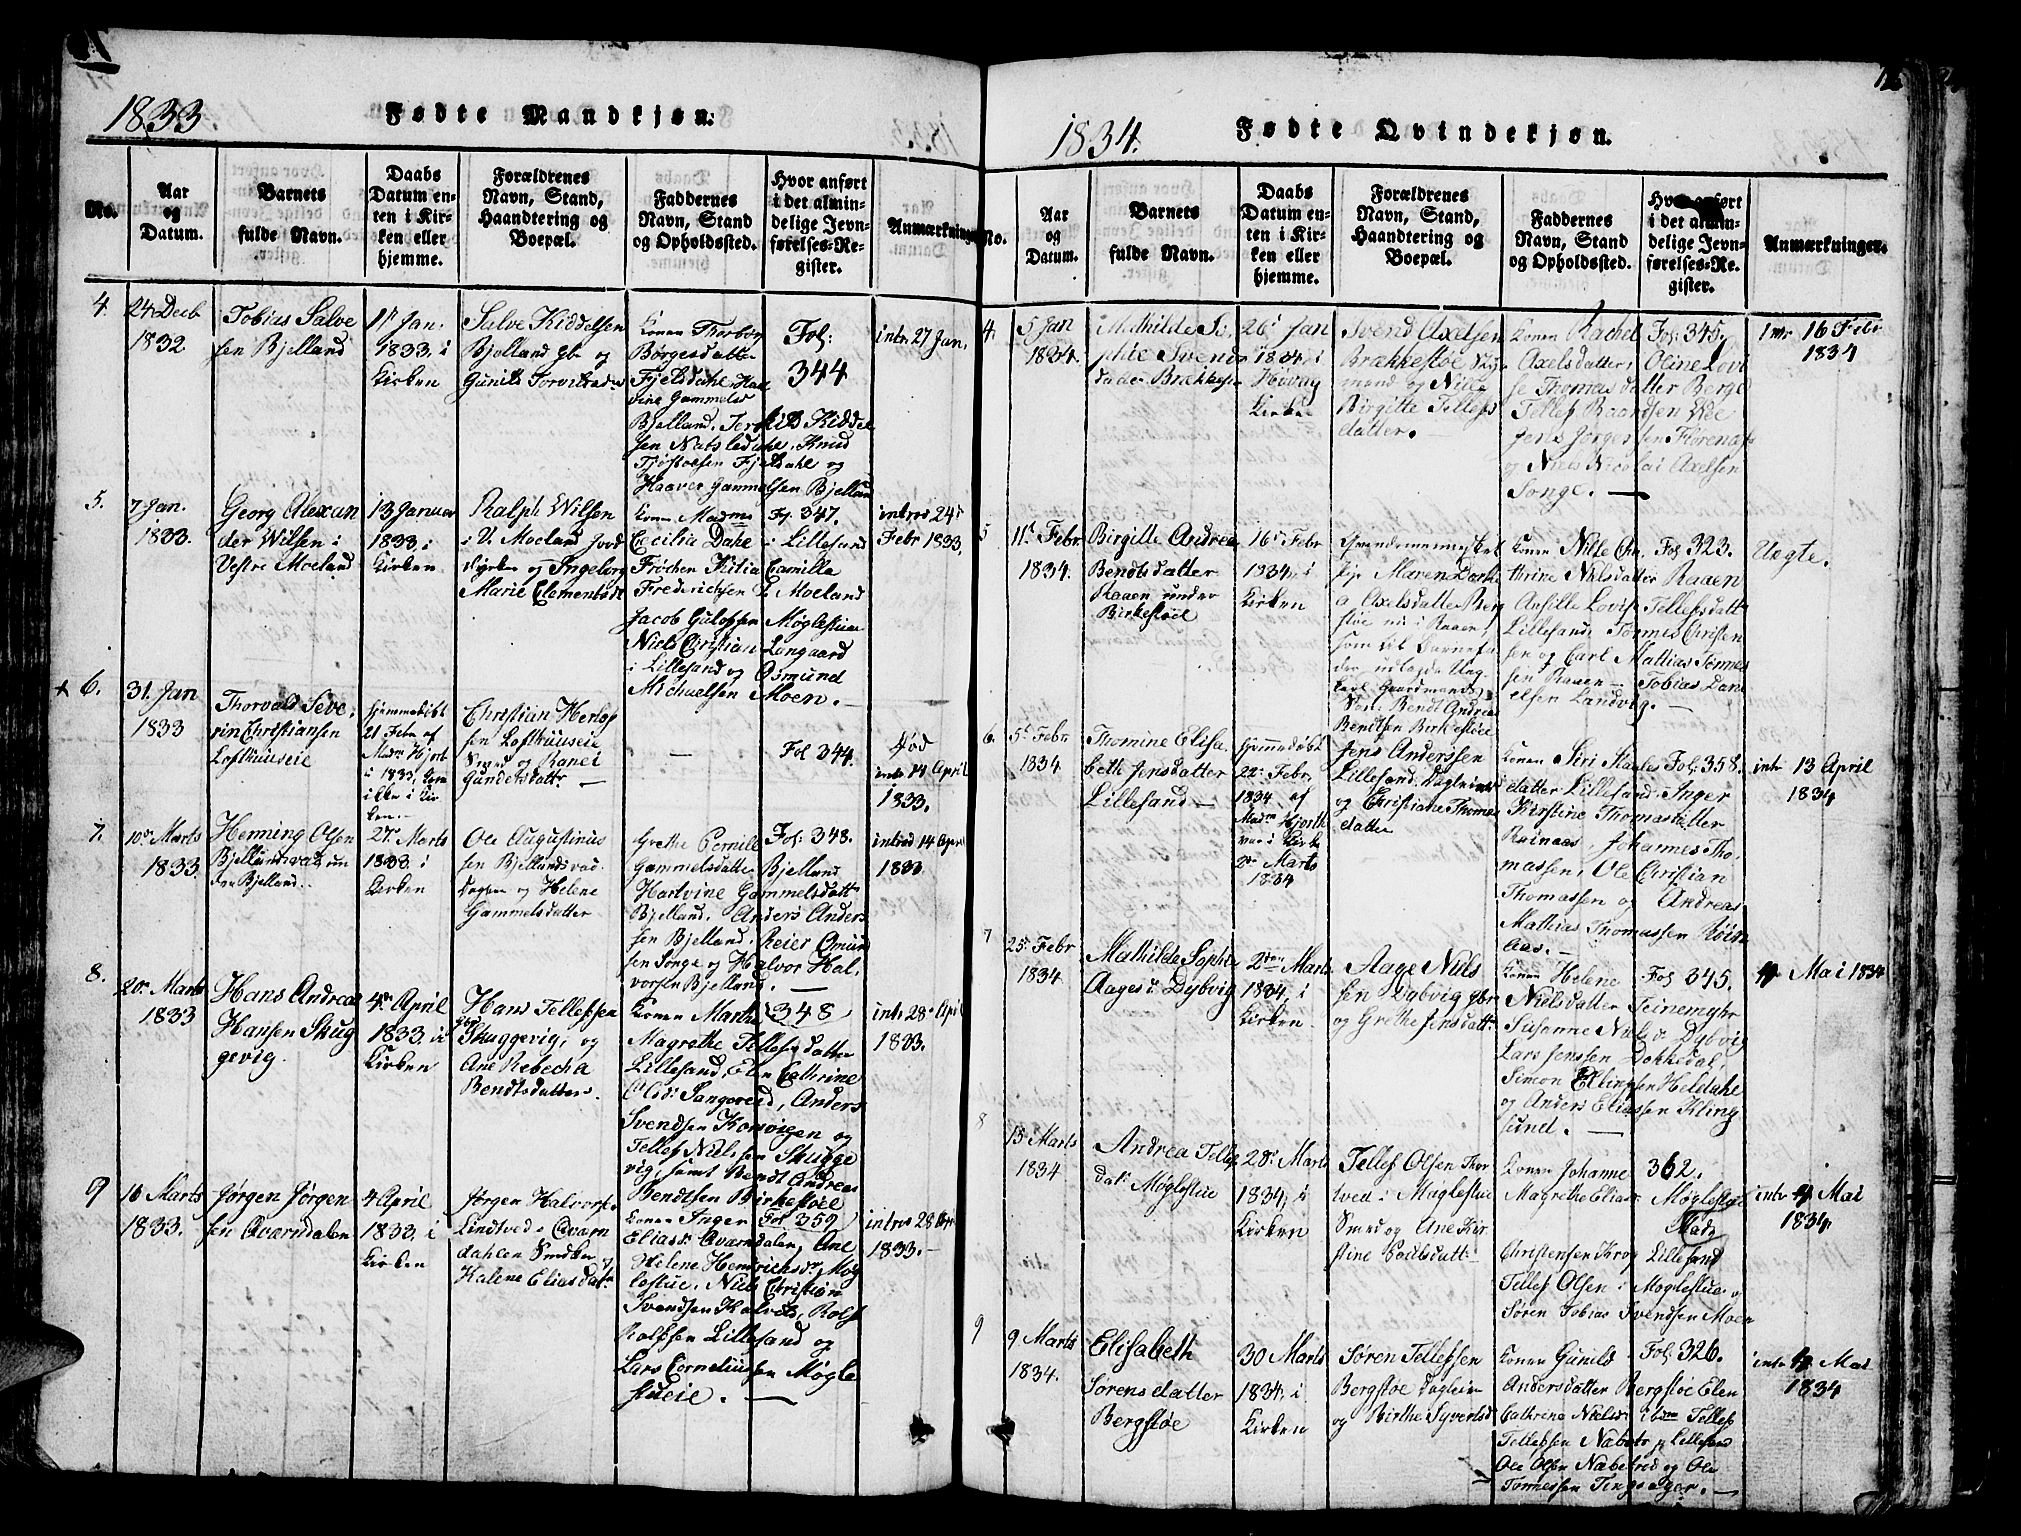 1833
Fødte Mandkjøn.
No.
Aar
og
Datum.
Barnets
fulde Navn.
Daabs
Datum en-
ten i Kir-
ken eller
hjemme.
Forældrenes
Navn, Stand,
Haandtering og
Boepæl.
Faddernes
Navn, Stand
og Opholdssted.
Hvor anført
i det almin-
delige Jevn-
førelses-Re-
gister.
Anmærkninger
4.
24 Decb
1832
Tobias Salve
sen Bjelland
11t Jan.
1833, i
Kirken
Salve Kiddelsen
Bjelland gbr og
Gunild Torvildsd
Konen Thorbor
Børgesdatter
Fjeldahl, Hart
vine Gammelsd
Bjelland, Terkild Kiddel
sen Natsledahl, Knud
Tjøstolsen Fjeldahl og
Haaver Gammelsen Bjelland
Fol:
344
intr 27 Jan.
5.
7 Jan.
1833.
Georg Alexan
der Wilsen i
Vestre Moeland
13 Januar
1833. i
Kirken
Ralph Wilsen
i V. Moeland Jord
dyrker og Ingeborg
Marie Clementsdt
Konen Madme
Cecilia Dahl i Lillesand
Frøken Kitia Camilla
Frederichsen V Moeland
Jacob Gulofsen Møglestue
Niels Christian Longaard
i Lillesand og Osmund
Michaelsen Moen. —
Fol 347.
introd 24d
Febr 1833.
+ 6.
31. Jan
1833
Thorvald Seve
rin Christiansen
Lofthuuseie
hjemmedøbt
21 Febr af
Madm Hjort
i 1833, kom
ikke i Kir
ken.
Christian Herlof
sen Lofthuuseie
Smed og Ranei
Gundersdattr —
—
Fol 344.
død
intr 14 April
1833.
7.
10de Marts
1833
Henning Olsen
Bjellandsvad un
der Bjelland..
27de Marts
1833 i
Kirken
Ole Augustinus
sen Bjellandsvad
Dagln og Helene
Gammelsdatter
Grethe Pernille
Gammelsdatter Bjelland
Hartvine Gammelsdatt
Bjelland. Anders Anders
sen Bjelland. Reier Omund
sen Songe og Halvor Hal
vorsen Bjelland. —
Fol: 348.
introd 14 April
1833
8.
20de Marts
1833
Hans Andreas
Hansen Skug
gevig.
4de April
1833. i
Kirken
Hans Tellefsen
Skuggevig, og
Ane Rebecha
Bendtsdatter.
Konen Marthe
Magrethe Tellefsdatter
Lillesand, Elen Cathrine
Olsd: Sangereid, Anders
Svendsen Korvigen og
Tellef Nielsen Skugge
vig, samt Bendt Andreas
Bendtsen Birkestøel
348
intr. 28de April
1833.
9
16 Marts
1833.
Jørgen Jørgen
sen Qvarndalen
4 April
1833. i
Kirken
Jørgen Halvorse
Lindtved i Qvarn
dahlen Snedker
Kalene Eliasdatr
Konen Inger Fol 359
Eliasd: Qvarndalen, Ane
Helene Hendrichsd: Møg
lestue, Niels Christian
Svendsen Kalvild, Rolf
Rolfsen Lillesand og
Lars Corneliussen Møgle
stueie. —
introd 28 Apr
1833. —
1834.
Fødte Qvindekjøn.
No.
Aar
og
Datum.
Barnets
fulde Navn.
Daabs
Datum en-
ten i Kir-
ken eller
hjemme.
Forældrenes
Navn, Stand,
Haandtering og
Boepæl.
Faddernes
Navn, Stand
og Opholdssted.
Hvor anført
i det almin-
delige Jevn-
førelses-Re-
gister.
Anmærkninger.
4.
5 Jan
1834.
Mathilde So
phie Svends
datter Brækkestø
26d Jan
1834, i
Høvaag
Kirke
Svend Axelsen
Brækkestøe
mand og Nille
Birgitte Tellefs
datter.
Konen Rachel
Axelsdatter, Oline Lovi
se Thomasdatter Berge
Tellef Baardsen
Jens Jørgensen Florenæs
og Niels Nicolai Axelsen
Songe. —
Fol: 345.
intr 16 Febr
1834
5
11t Febr
1834.
Birgitte Andrea
Bendtsdatter
Raaen under
Birkestøel
16d Febr
1834, i
Kirken
Qvindemennesket
pige Maren Dorthe
a Axelsdatter Berg
støe nu i Raaen,
som til Barnefa
der udlagde Ung
karl Gaardmands
Søn: Bendt Andreas
Bendtsen Birkestøle
Konen Nille Ca
thrine Nielsdatter Raaen
Ansille Lovise Tellefsdatt
Lillesand, Tønnes Christen
sen og Carl Mathias Tønnes
sen Raaen — Tobias Dani
elsen Landvig. —
Fol 323.
Uegte.
6.
5t Febr
1834
Thomine Elisa
beth Jensdatter
Lillesand —
hjemmedøbt
22de Febr,
1834 af
Madm Hjorth
var i Kirke
2de Marts
1834
Jens Anderssen
Lillesand, Dagleier
og Christiane Thomas
datter
Konen Siri Staales
datter Lillesand. Inger
Kirstine Thomasdatter
Røinaas, Johannes Tho,
massen, Ole Christian
Thomassen og Andreas
Mathias Thomassen Røin
aas. —
Fol: 358.
intr 13 April
1834
7
25t Febr
1834
Mathilde Sophie
Aagesd. Dybvig
2den Marts
1834, i
Kirken
Aage Niels
sen Dybvig gbr
og Grethe Jensdattr
Konen Helene
Nielsdatter Teinemyhr
Susanne Nielsd. Dybvig
Lars Jenssen Dokkedal,
Simon Ellingsen Heldahl
og Anders Eliassen Kling
sund. —
Fol 345.
4 Mai 1834
8
15 Marts
1834
Andrea Tellefs
dat. Møglestue
28de Marts
1834, i
Kirken
Tellef Olsen Thor
tved i Møglestue
Smed og Ane Kir
stine Poulsdatt
Konen Johanne
Magrethe Eliasd Møglestue
Mads
Christensen Krog Lillesand
Tellef Olsen i Møglestue og
Søren Tobias Svendsen Moen
362.
intr 4 Mai
1834.
9
9 Marts
1834.
Elisabeth
Sørensdatter
Bergstøe
30 Marts
1834. i
Kirken
Søren Tellefsen
Bergstøe Dagleier
og Birthe Syvertsd
Konen Gunild
Andersdatter Bergstøe Elen
Cathrine Nielsd: ibm Tellef
Tellefsen Næbstr p Lillesand
Ole Olsen Næbstrød og Ole
Tønnessen Tingsager. —
Fol 326.
intr 4 Mai
1834